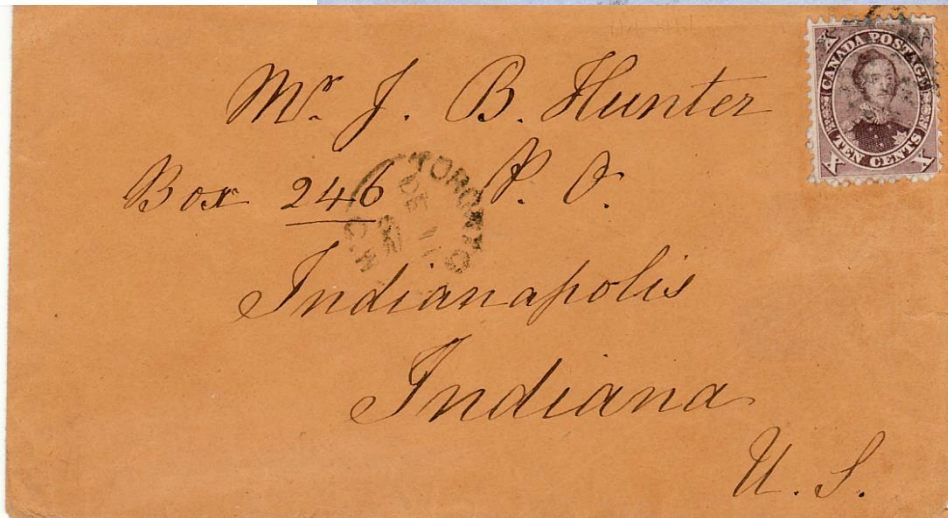 X CANADA POSTAGE X
X TEN CENTS X
Mr. J. B. Hunter
Box 246 P. O.
TORONTO
DE 11
C.W
Indianapolis
Indiana
U. S.